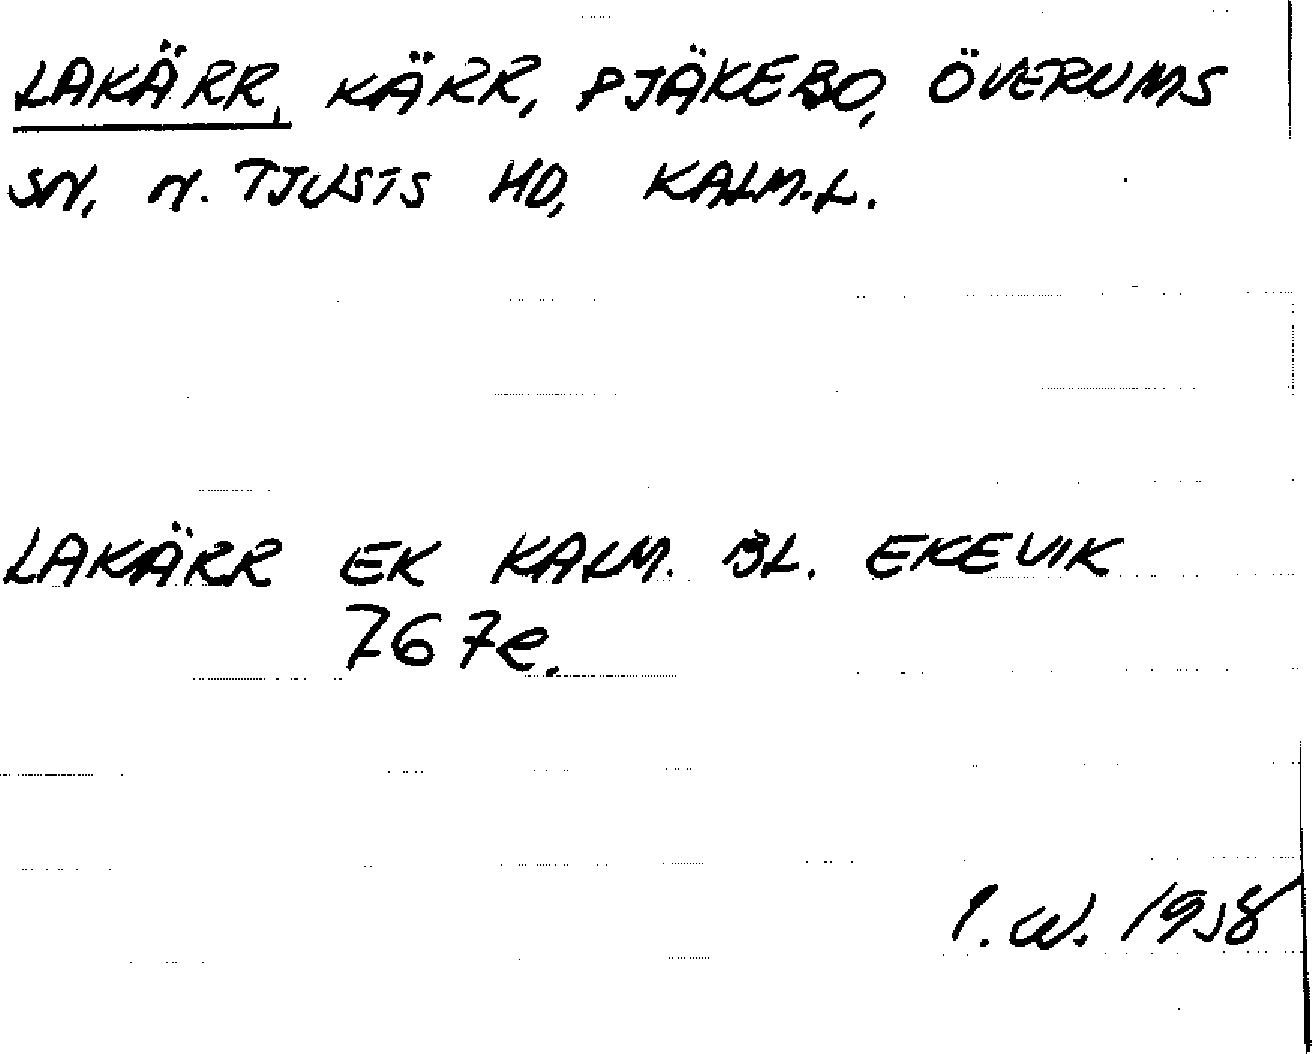 LAKÄRR, KÄRR, PJÄKEBO, ÖVERUMS
SN, N. TJUSTS HD, KALM.L.
LAKÄRR EK KALM. BL. EKEVIK
767e.
I.W.